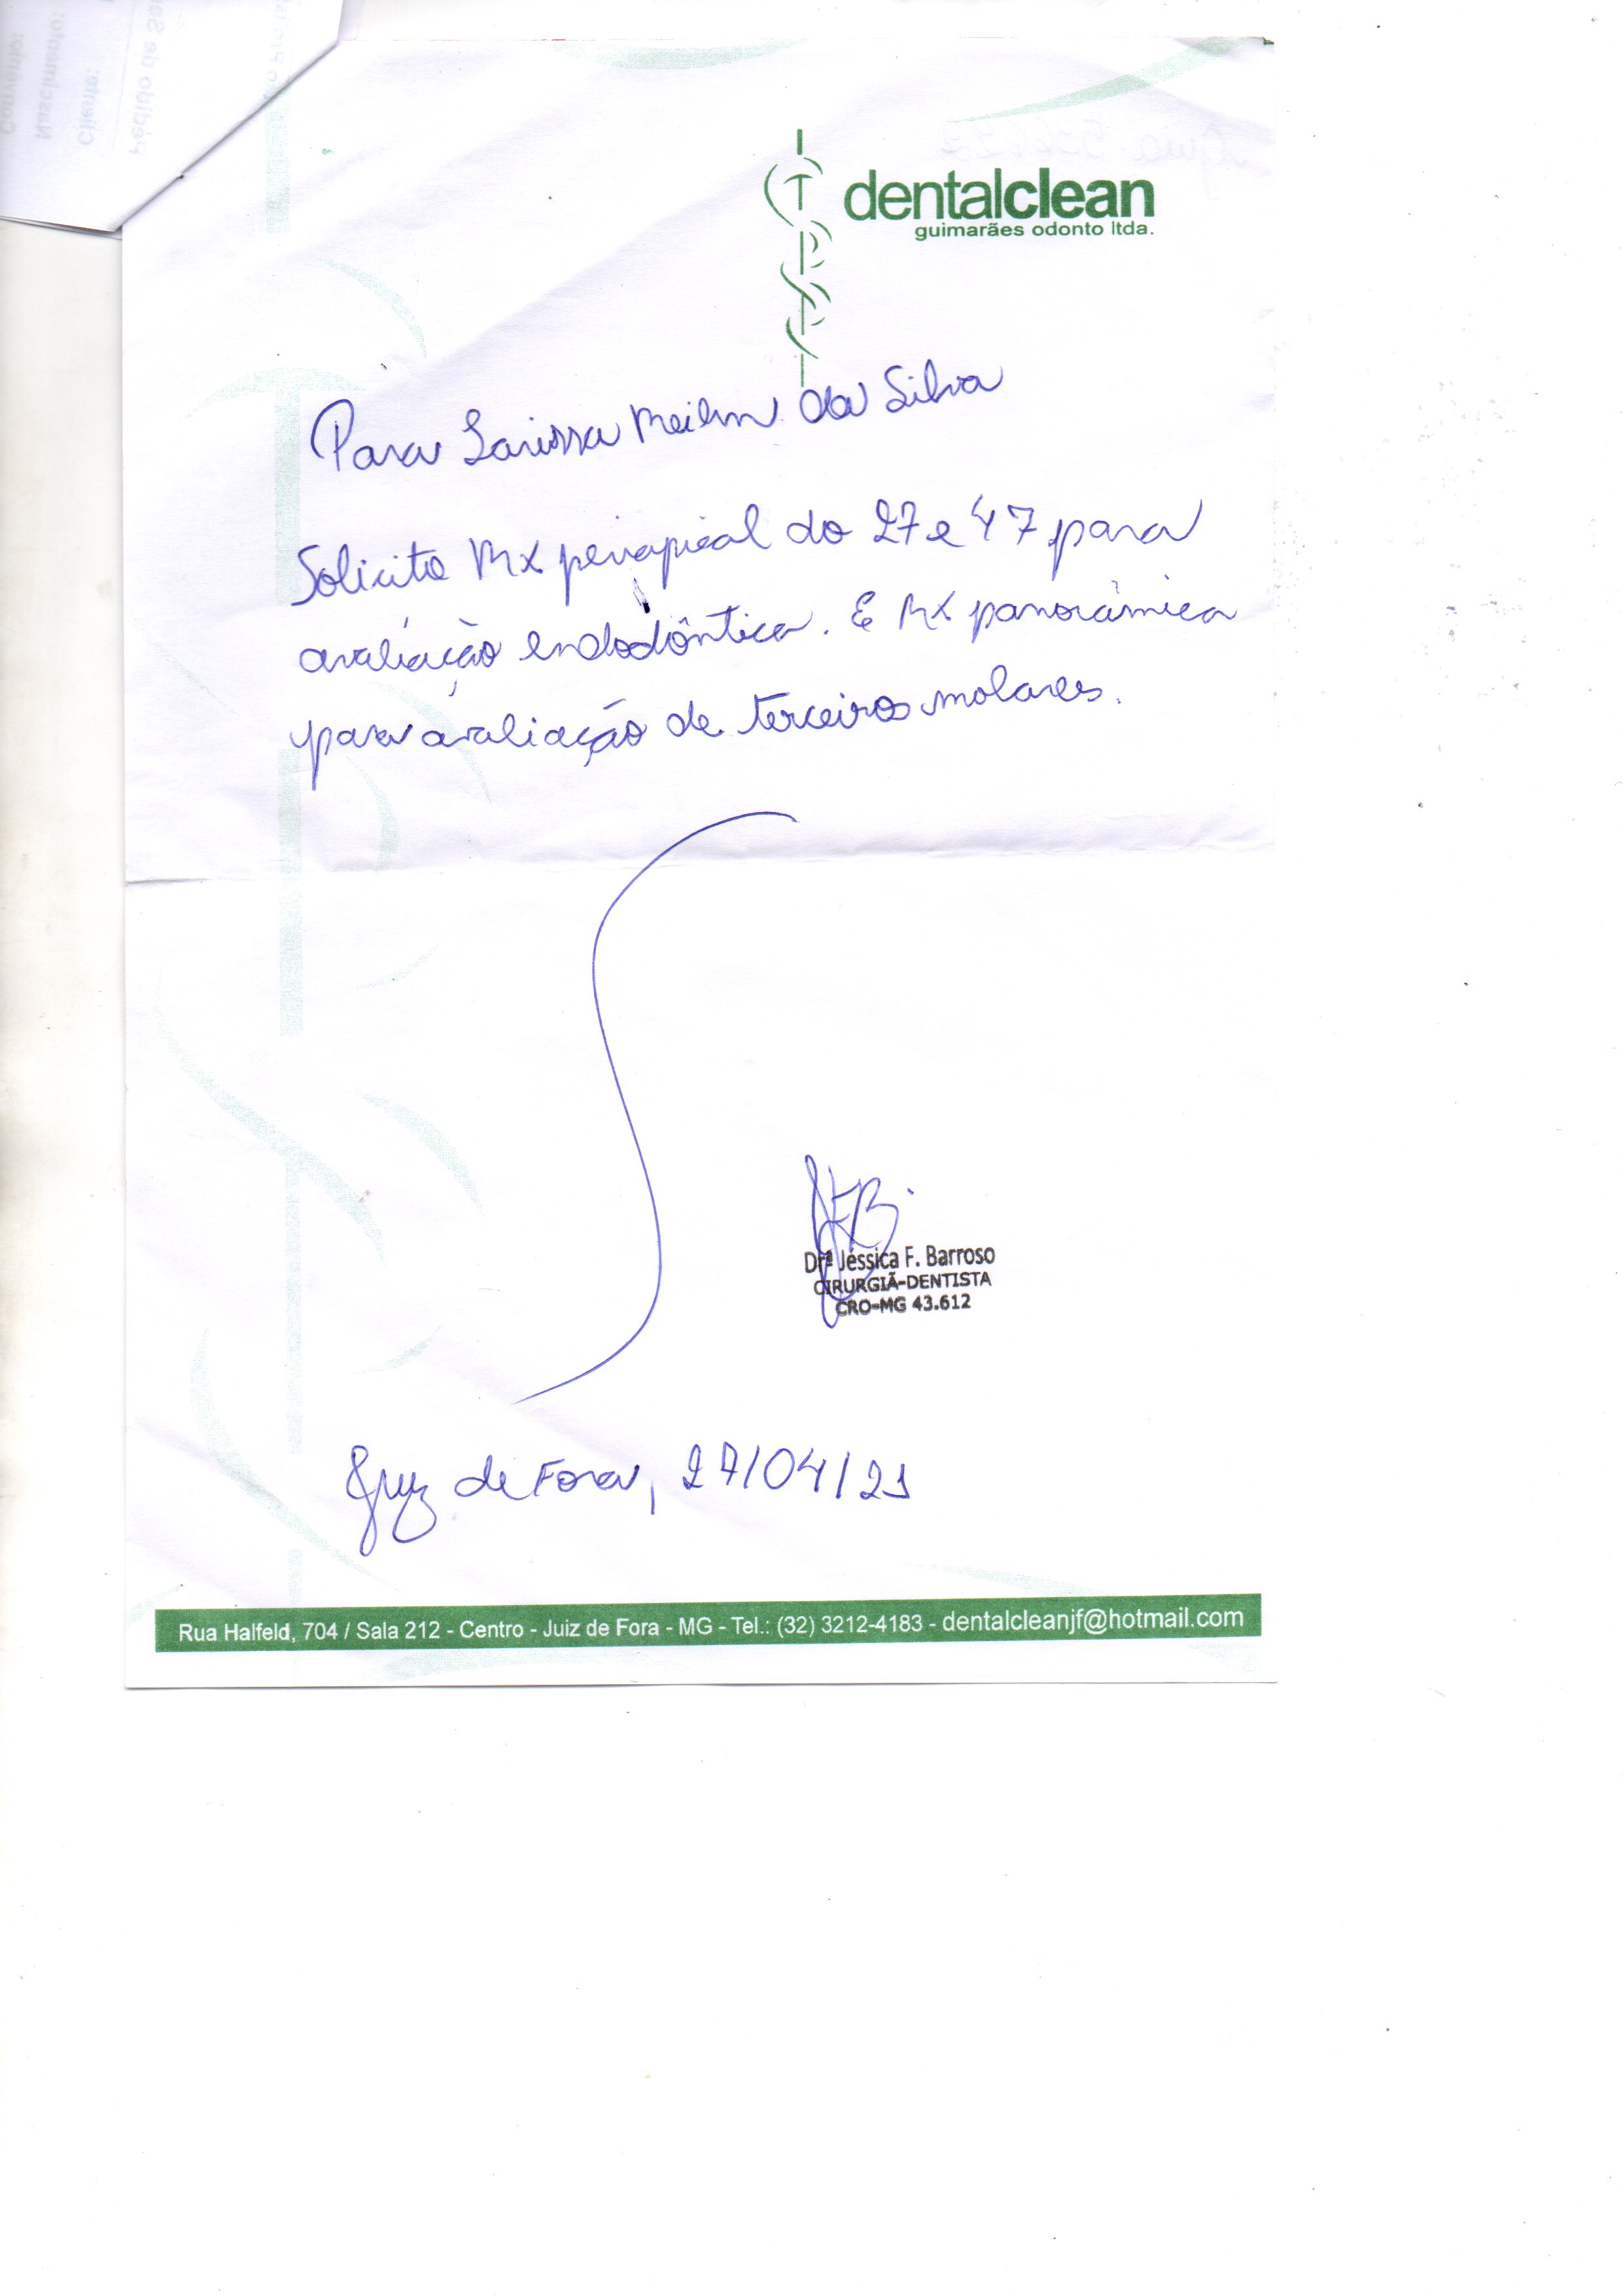 dentalclean
guimarães odonto ltda.
Para Larissa da Silva
Solicito RX periapical do 27 e 47 para
avaliação endodôntica. E RX panorâmica
para avaliação de terceiros molares.
Drª Jéssica F. Barroso
CIRURGIÃ-DENTISTA
CRO-MG 43.612
Juiz de Fora, 27/04/21
Rua Halfeld, 704 / Sala 212 - Centro - Juiz de Fora - MG - Tel.: (32) 3212-4183 - dentalcleanjf@hotmail.com